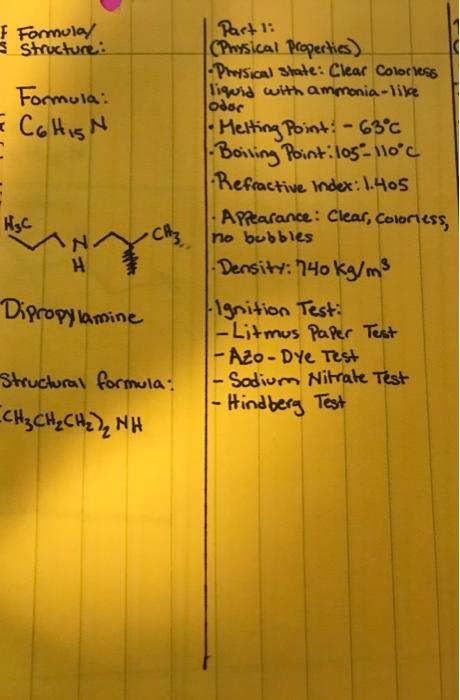 Formula/
Structure:
Formula:
C6H15N
H3C
N
H
CH3
Dipropylamine
Structural formula:
(CH3CH2CH2)2 NH
Part 1:
(Physical Properties)
• Physical State: Clear Colorless
liquid with ammonia-like
odor
• Melting Point: -63°C
• Boiling Point: 105°-110°C
• Refractive Index: 1.405
• Appearance: Clear, Colorless,
no bubbles
• Density: 740 kg/m3
• Ignition Test:
- Litmus Paper Test
- Azo-Dye Test
- Sodium Nitrate Test
- Hindberg Test